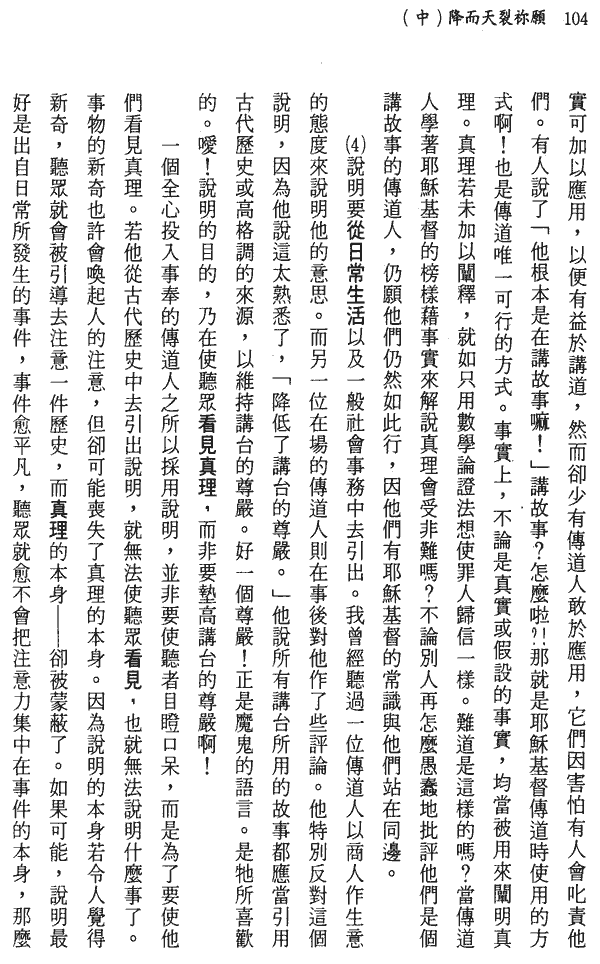 願祢裂天而降(中) 104
實可加以應用，以便有益於講道，然而卻少有傳道人敢於應用，它們因害怕有人會叱責他
們。有人說了「他根本是在講故事嘛！」講故事？怎麼啦?!那就是耶穌基督傳道時使用的方
式啊！也是傳道唯一可行的方式。事實上，不論是真實或假設的事實，均當被用來闡明真
理。真理若未加以闡釋，就如只用數學論證法想使罪人歸信一樣。難道是這樣的嗎？當傳道
人學著耶穌基督的榜樣藉事實來解說真理會受非難嗎？不論別人再怎麼愚蠢地批評他們是個
講故事的傳道人，仍願他們仍然如此行，因他們有耶穌基督的常識與他們站在同邊。
(4)說明要從日常生活以及一般社會事務中去引出。我曾經聽過一位傳道人以商人作生意
的態度來說明他的意思。而另一位在場的傳道人則在事後對他作了些評論。他特別反對這個
說明，因為他說這太熟悉了，「降低了講台的尊嚴。」他說所有講台所用的故事都應當引用
古代歷史或高格調的來源，以維持講台的尊嚴。好一個尊嚴！正是魔鬼的語言。是牠所喜歡
的。噯！說明的目的，乃在使聽眾看見真理，而非要墊高講台的尊嚴啊！
一個全心投入事奉的傳道人之所以採用說明，並非要使聽者目瞪口呆，而是為了要使他
們看見真理。若他從古代歷史中去引出說明，就無法使聽眾看見，也就無法說明什麼事了。
事物的新奇也許會喚起人的注意，但卻可能喪失了真理的本身。因為說明的本身若令人覺得
新奇，聽眾就會被引導去注意一件歷史，而真理的本身——卻被蒙蔽了。如果可能，說明最
好是出自日常所發生的事件，事件愈平凡，聽眾就愈不會把注意力集中在事件的本身，那麼